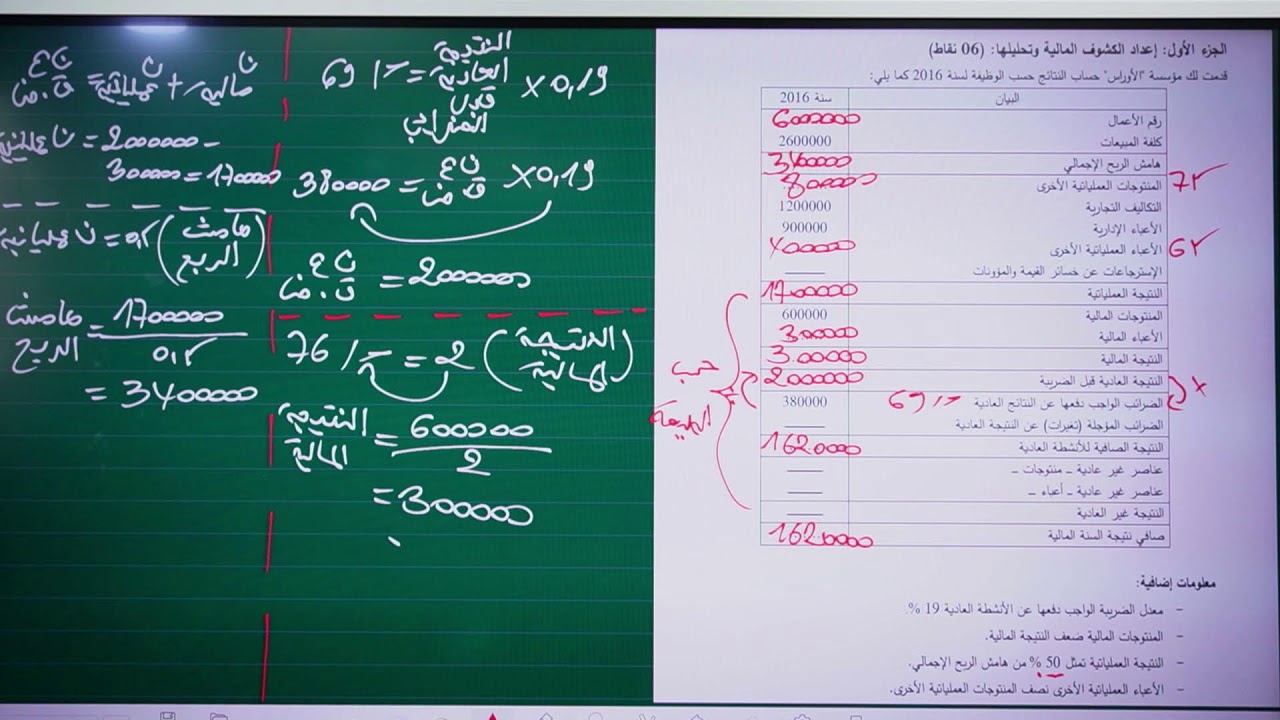 الجزء الأول: إعداد الكشوف المالية وتحليلها: (06 نقاط)
قدمت لك مؤسسة "الأوراس" حساب النتائج حسب الوظيفة لسنة 2016 كما يلي:
البيان سنة 2016
رقم الأعمال 6000000
كلفة المبيعات 2600000
هامش الربح الإجمالي 3400000
المنتوجات العملياتية الأخرى 800000
التكاليف التجارية 1200000
الأعباء الإدارية 900000
الأعباء العملياتية الأخرى 400000
الإسترجاعات عن خسائر القيمة والمؤونات ——
النتيجة العملياتية 1700000
المنتوجات المالية 600000
الأعباء المالية 300000
النتيجة المالية 300000
النتيجة العادية قبل الضريبة 2000000
الضرائب الواجب دفعها عن النتائج العادية 69/ح 380000
الضرائب المؤجلة (تغيرات) عن النتيجة العادية ——
النتيجة الصافية للأنشطة العادية 1620000
عناصر غير عادية – منتوجات – ——
عناصر غير عادية – أعباء – ——
النتيجة غير العادية ——
صافي نتيجة السنة المالية 1620000
معلومات إضافية:
– معدل الضريبة الواجب دفعها عن الأنشطة العادية 19 %.
– المنتوجات المالية ضعف النتيجة المالية.
– النتيجة العملياتية تمثل 50 % من هامش الربح الإجمالي.
– الأعباء العملياتية الأخرى نصف المنتوجات العملياتية الأخرى.
حسب
الطبيعة
69 /ح = النتيجة العادية قبل الضرائب × 0,19
380000 = ن ع ق.ض × 0,19
ن ع ق.ض = 2000000
76 /ح = 2 (النتيجة المالية)
النتيجة المالية = 600000 / 2
= 300000
ن ع ق.ض = ن عملياتية + ن مالية
= 2000000 -
300000 = 1700000
(هامش الربح) 0,5 = ن عملياتية
هامش الربح = 1700000 / 0,5
= 3400000